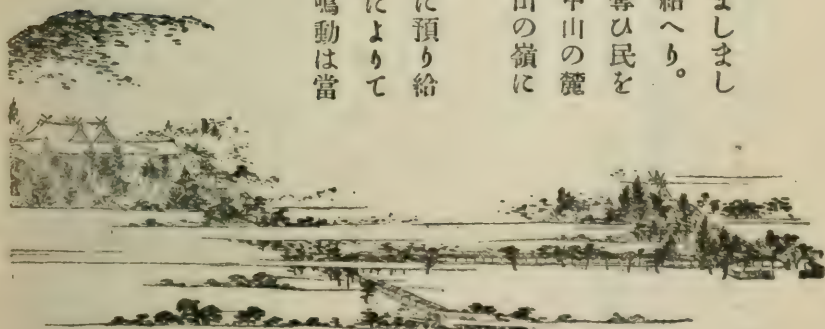 ましまし
給へり。
奪ひ民を
中山の麓
山の嶺に
に預り給
によりて
鳴動は當